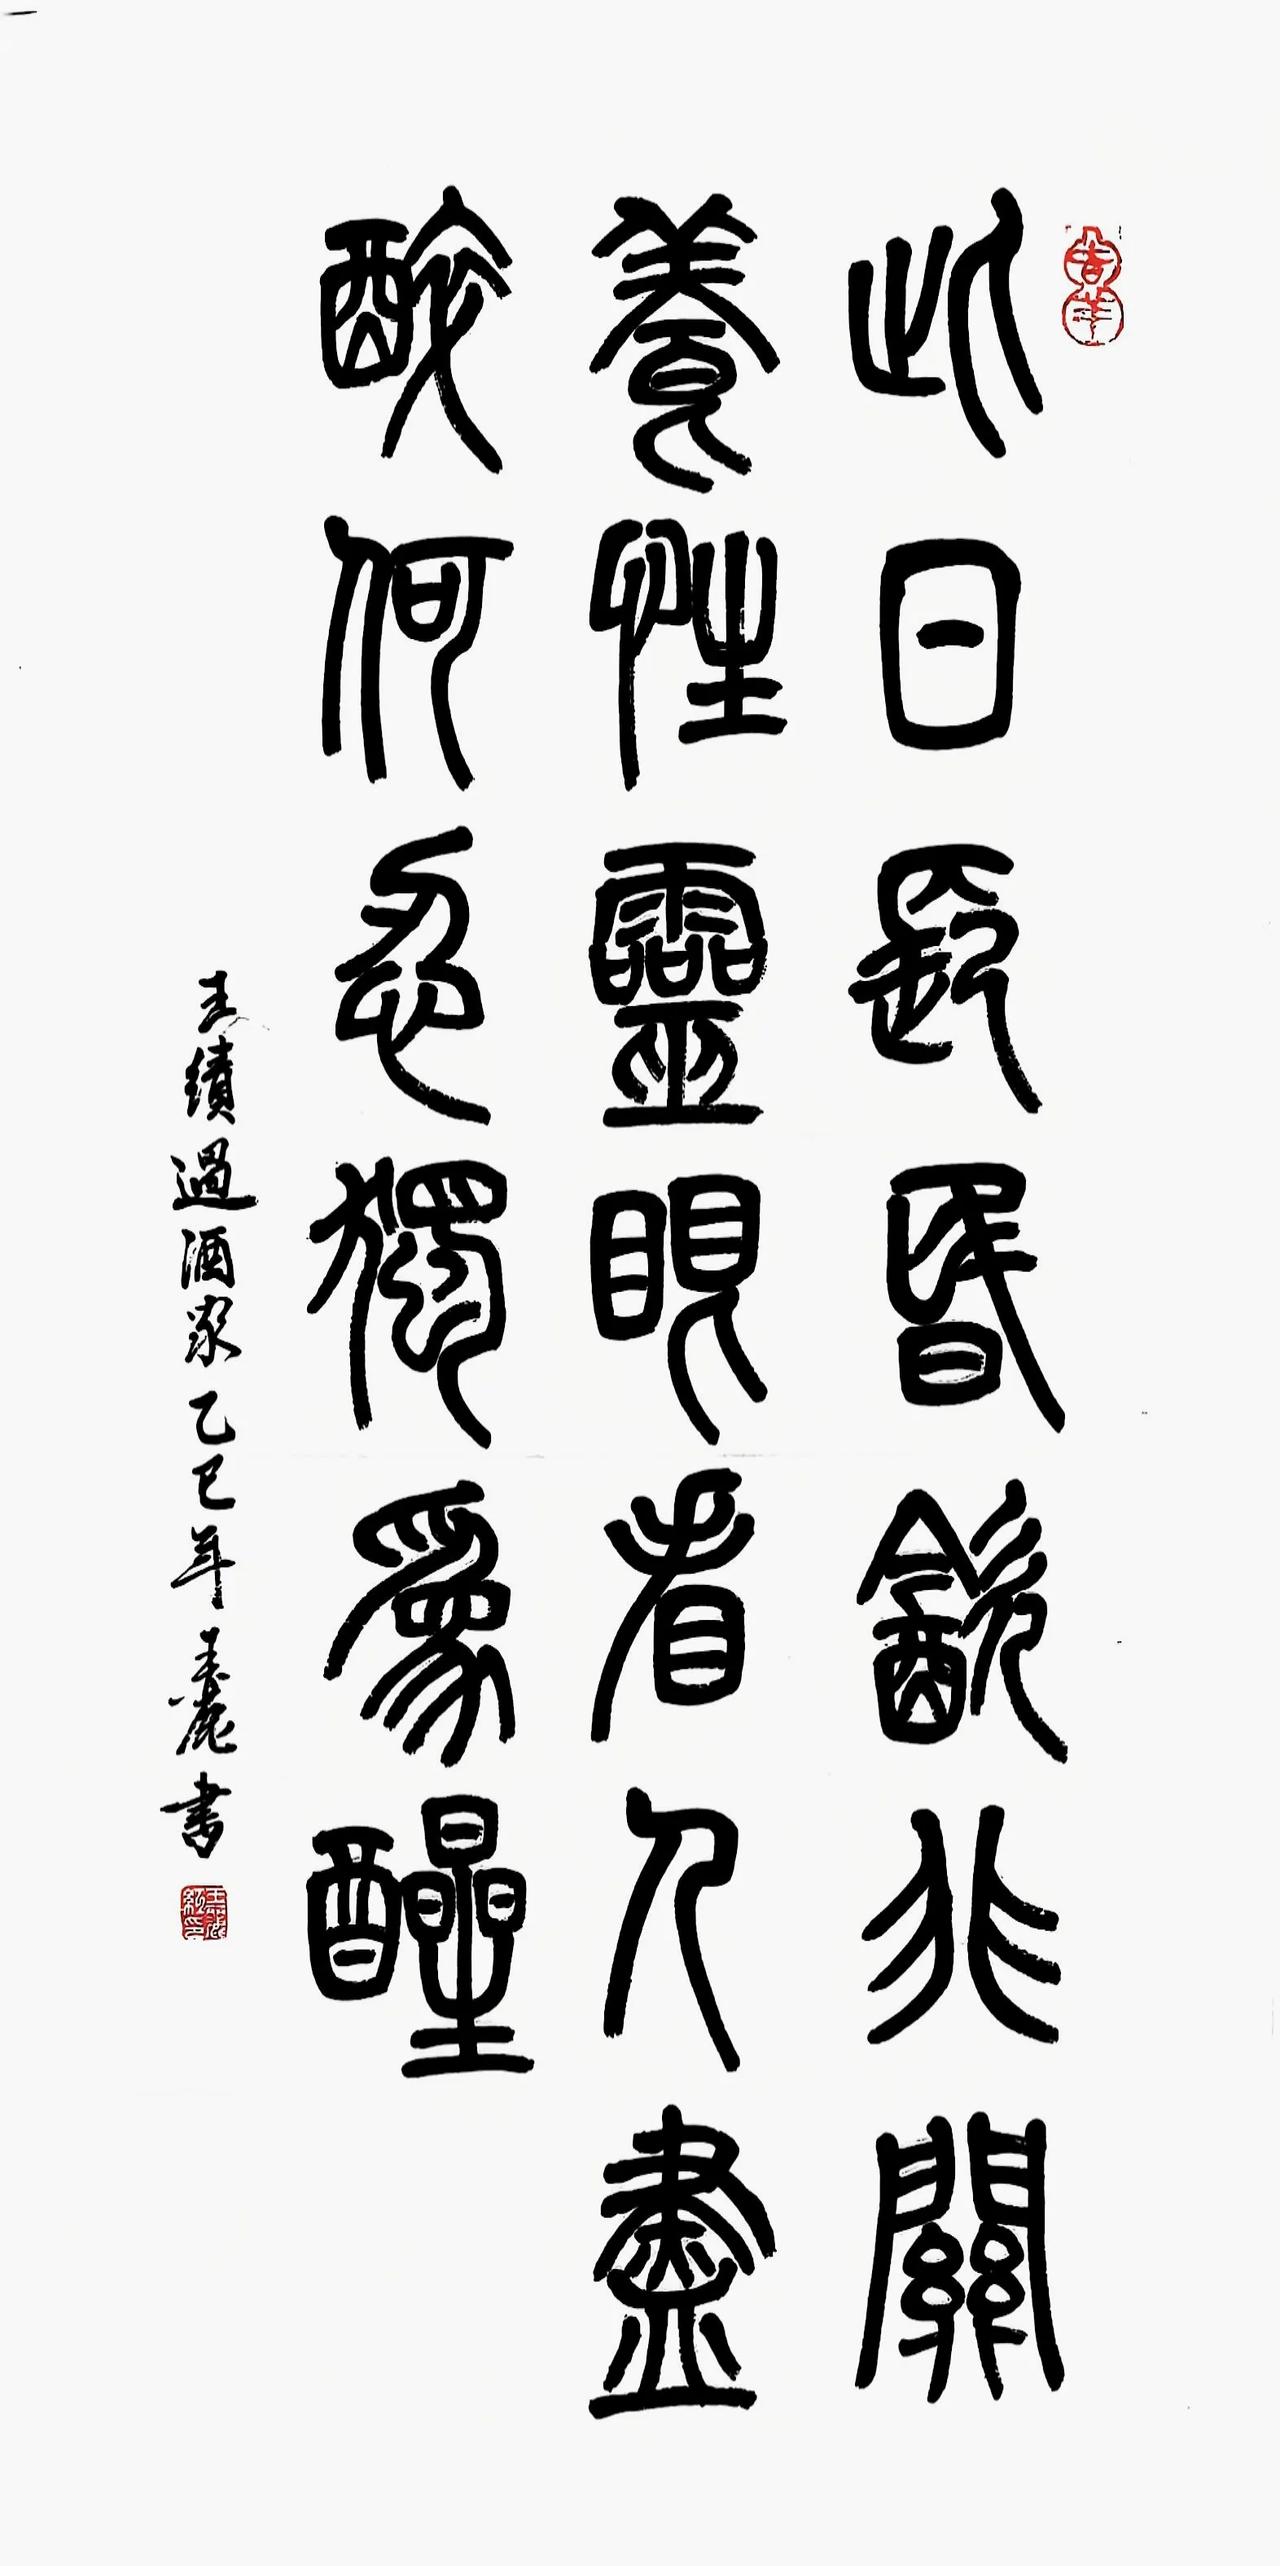 此日長昏飲非關
養性靈眼看人盡
醉何忍獨為醒
王績過酒家乙巳年王麗書